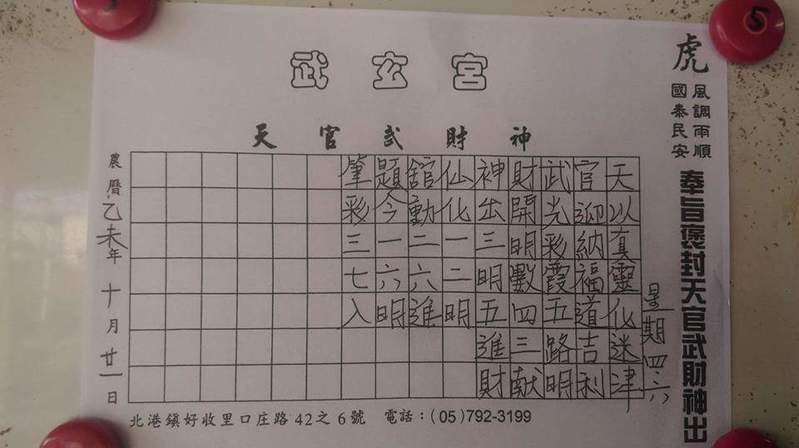 武玄宮
天官武財神
虎
風調雨順
國泰民安
奉旨褒封天官武財神出
星期四、六
天以真靈化迷津
官迎納福道吉利
武光彩霞五路明
財開明數四三献
神出三明五進財
仙化一二明
舘動二六進
題今一六明
肇彩三七入
農曆乙未年十月廿一日
北港鎮好收里口庄路42之6號 電話：(05)792-3199